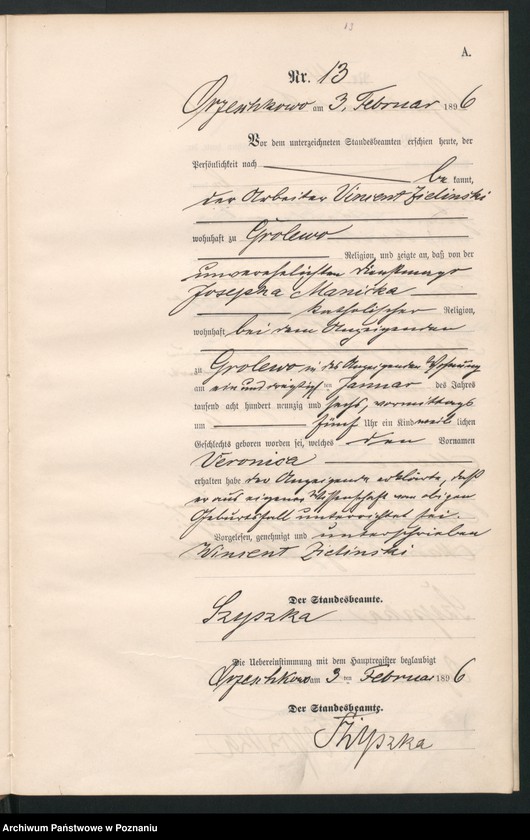 13
A.
Nr. 13
Orzeschkowo am 3. Februar 1896
Vor dem unterzeichneten Standesbeamten erschien heute, der
Persönlichkeit nach
be kannt,
der Arbeiter Vincent Zielinski
wohnhaft zu Grolewo
Religion, und zeigte an, daß von der
unverehelichten Dienstmagd
Josepha Manicka
katholischer Religion,
wohnhaft bei dem Anzeigenden
zu Grolewo in des Anzeigenden Wohnung
am ein und dreißigsten Januar des Jahres
tausend acht hundert neunzig und sechs, vormittags
um fünf Uhr ein Kind weib lichen
Geschlechts geboren worden sei, welches den Vornamen
Veronica
erhalten habe der Anzeigende erklärte, daß
er aus eigener Wissenschaft von obigen
Geburtsfall unterrichtet sei.
Vorgelesen, genehmigt und unterschrieben
Winsent Zielinski
Der Standesbeamte.
Szyszka
Die Uebereinstimmung mit dem Hauptregister beglaubigt
Orzeschkowo am 3 ten Februar 1896
Der Standesbeamte.
Szyszka
Archiwum Państwowe w Poznaniu